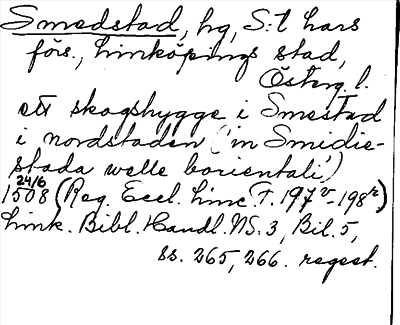 Smedstad, hg, S:t Lars
förs., Linköpings stad,
Österg. l.
ett skogshygge i Smestad
i nordstaden ('in Smidie-
stada welle borientali')
24/6
1508 (Reg. Eccl. Linc. F. 197v-198r)
Link. Bibl. Handl. NS. 3, Bil. 5,
ss. 265, 266. regest.